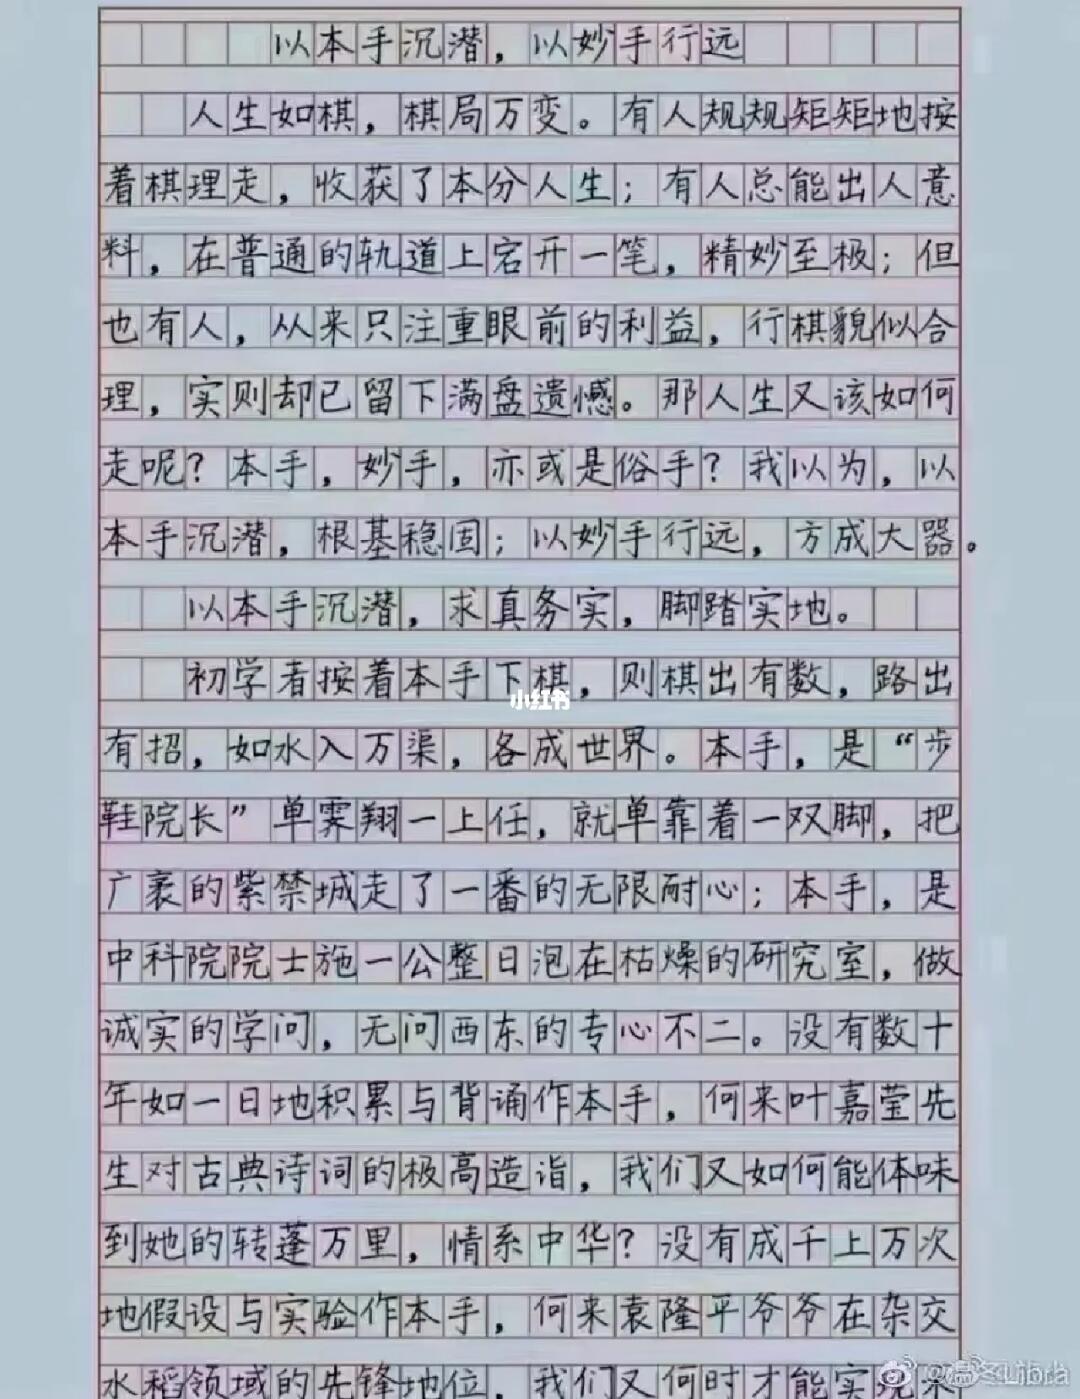 以本手沉潜，以妙手行远
人生如棋，棋局万变。有人规规矩矩地按
着棋理走，收获了本分人生；有人总能出人意
料，在普通的轨道上宕开一笔，精妙至极；但
也有人，从来只注重眼前的利益，行棋貌似合
理，实则却已留下满盘遗憾。那人生又该如何
走呢？本手，妙手，亦或是俗手？我以为，以
本手沉潜，根基稳固；以妙手行远，方成大器。
以本手沉潜，求真务实，脚踏实地。
初学者按着本手下棋，则棋出有数，路出
小红书
有招，如水入万渠，各成世界。本手，是“步
鞋院长”单霁翔一上任，就单靠着一双脚，把
广袤的紫禁城走了一番的无限耐心；本手，是
中科院院士施一公整日泡在枯燥的研究室，做
诚实的学问，无问西东的专心不二。没有数十
年如一日地积累与背诵作本手，何来叶嘉莹先
生对古典诗词的极高造诣，我们又如何能体味
到她的转蓬万里，情系中华？没有成千上万次
地假设与实验作本手，何来袁隆平爷爷在杂交
水稻领域的先锋地位，我们又何时才能实现